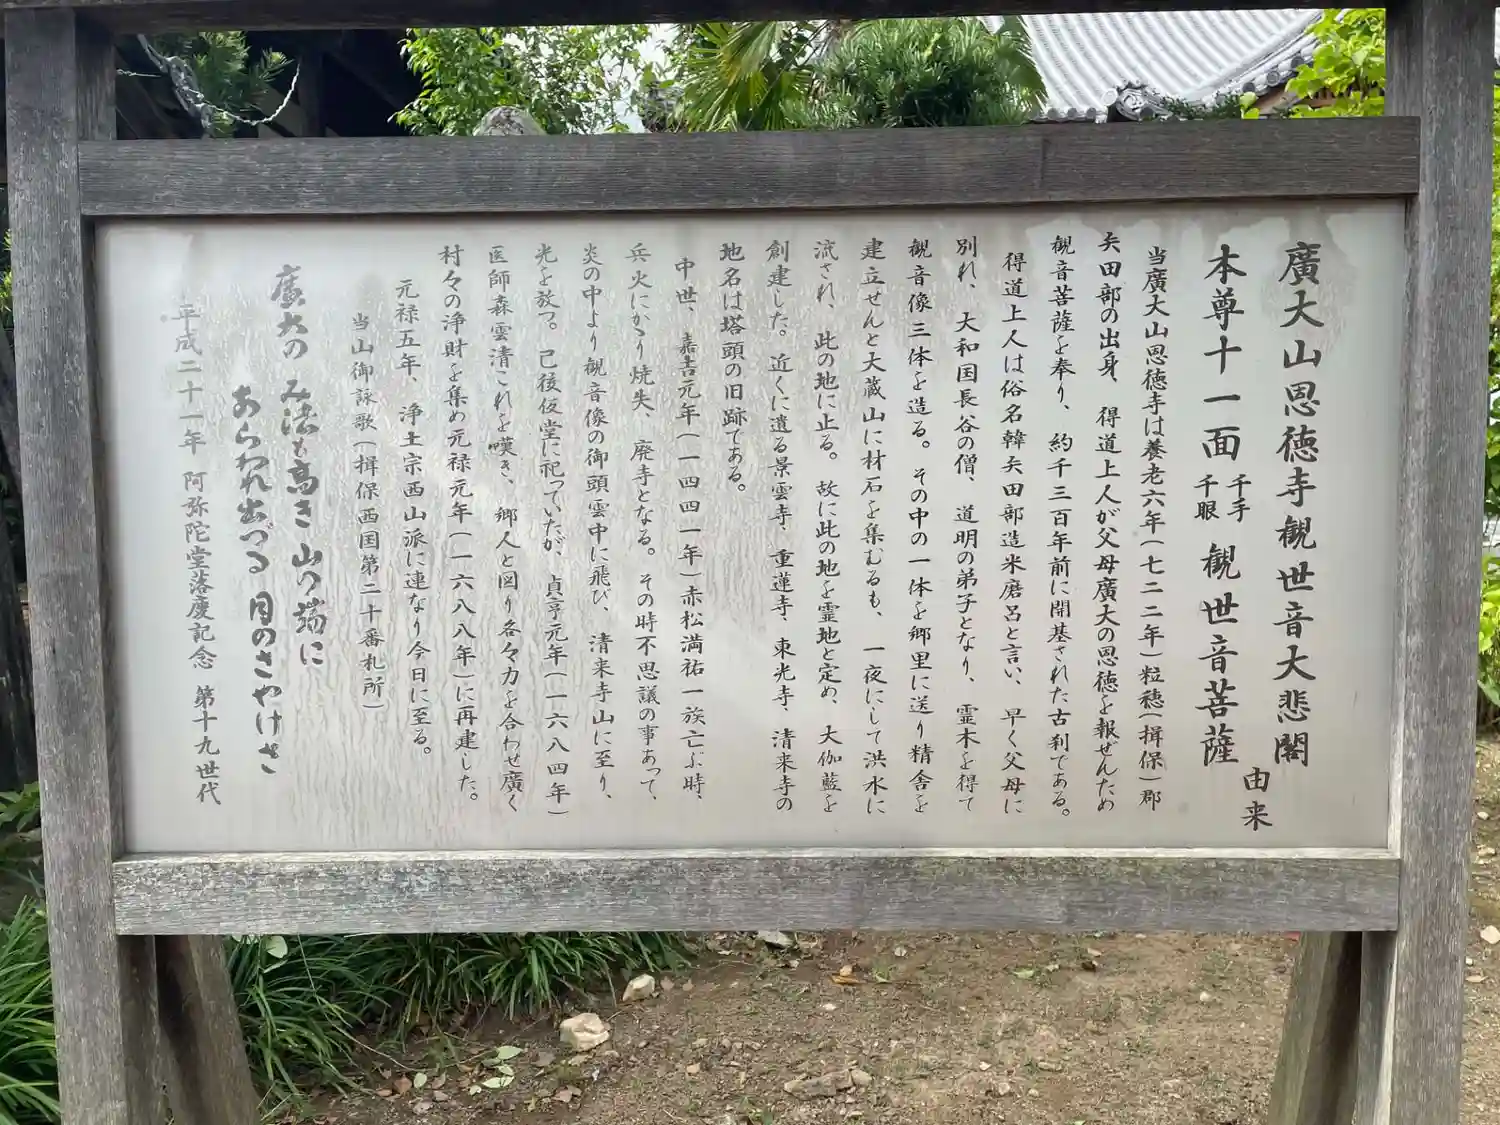 廣大山恩徳寺観世音大悲閣
本尊十一面千手千眼観世音菩薩
由来
当廣大山恩徳寺は養老六年(七二二年)粒穂(揖保)郡
矢田部の出身、得道上人が父母廣大の恩徳を報ぜんため
観音菩薩を奉り、約千三百年前に開基された古刹である。
得道上人は俗名韓矢田部造米麿呂と言い、早く父母に
別れ、大和国長谷の僧、道明の弟子となり、霊木を得て
観音像三体を造る。その中の一体を郷里に送り精舎を
建立せんと大蔵山に材石を集むるも、一夜にして洪水に
流され、此の地に止る。故に此の地を霊地と定め、大伽藍を
創建した。近くに遺る景雲寺、重蓮寺、東光寺、清来寺の
地名は塔頭の旧跡である。
中世、嘉吉元年(一四四一年)赤松満祐一族亡ぶ時、
兵火にかゝり焼失、廃寺となる。その時不思議の事あって、
炎の中より観音像の御頭雲中に飛び、清来寺山に至り、
光を放つ。己後仮堂に祀っていたが、貞亨元年(一六八四年)
医師森雲清これを嘆き、郷人と図り各々力を合わせ廣く
村々の浄財を集め元禄元年(一六八八年)に再建した。
元禄五年、浄土宗西山派に連なり今日に至る。
当山御詠歌(揖保西国第二十番札所)
廣大の み法も高き 山の端に
あらわれ出づる 月のさやけさ
平成二十一年 阿弥陀堂落慶記念 第十九世代